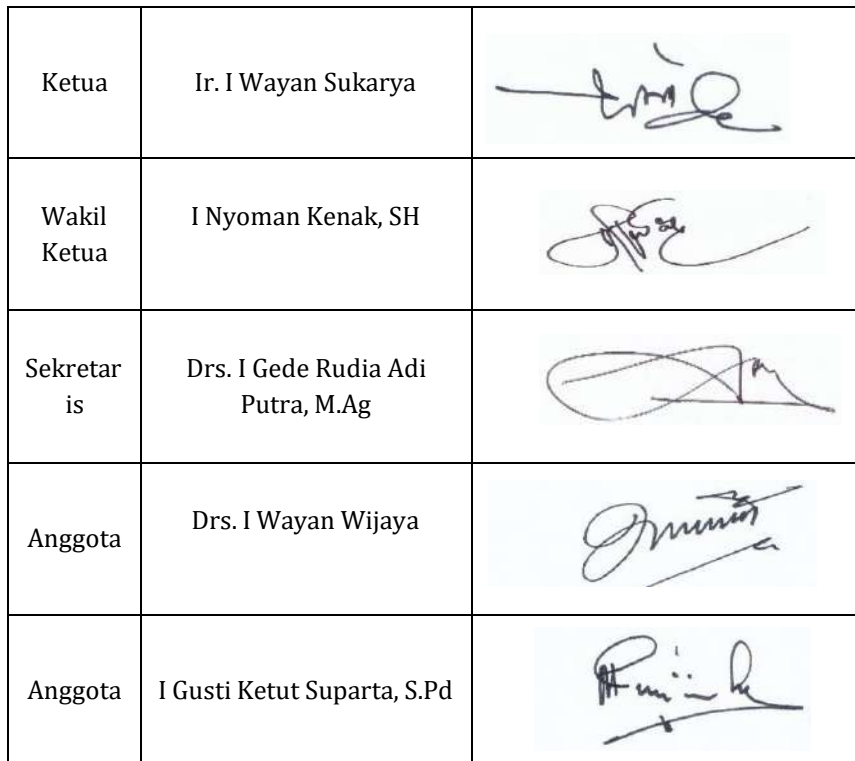 Ketua
Ir. I Wayan Sukarya
Wakil
Ketua
I Nyoman Kenak, SH
Sekretar
is
Drs. I Gede Rudia Adi
Putra, M.Ag
Anggota
Drs. I Wayan Wijaya
Anggota
I Gusti Ketut Suparta, S.Pd